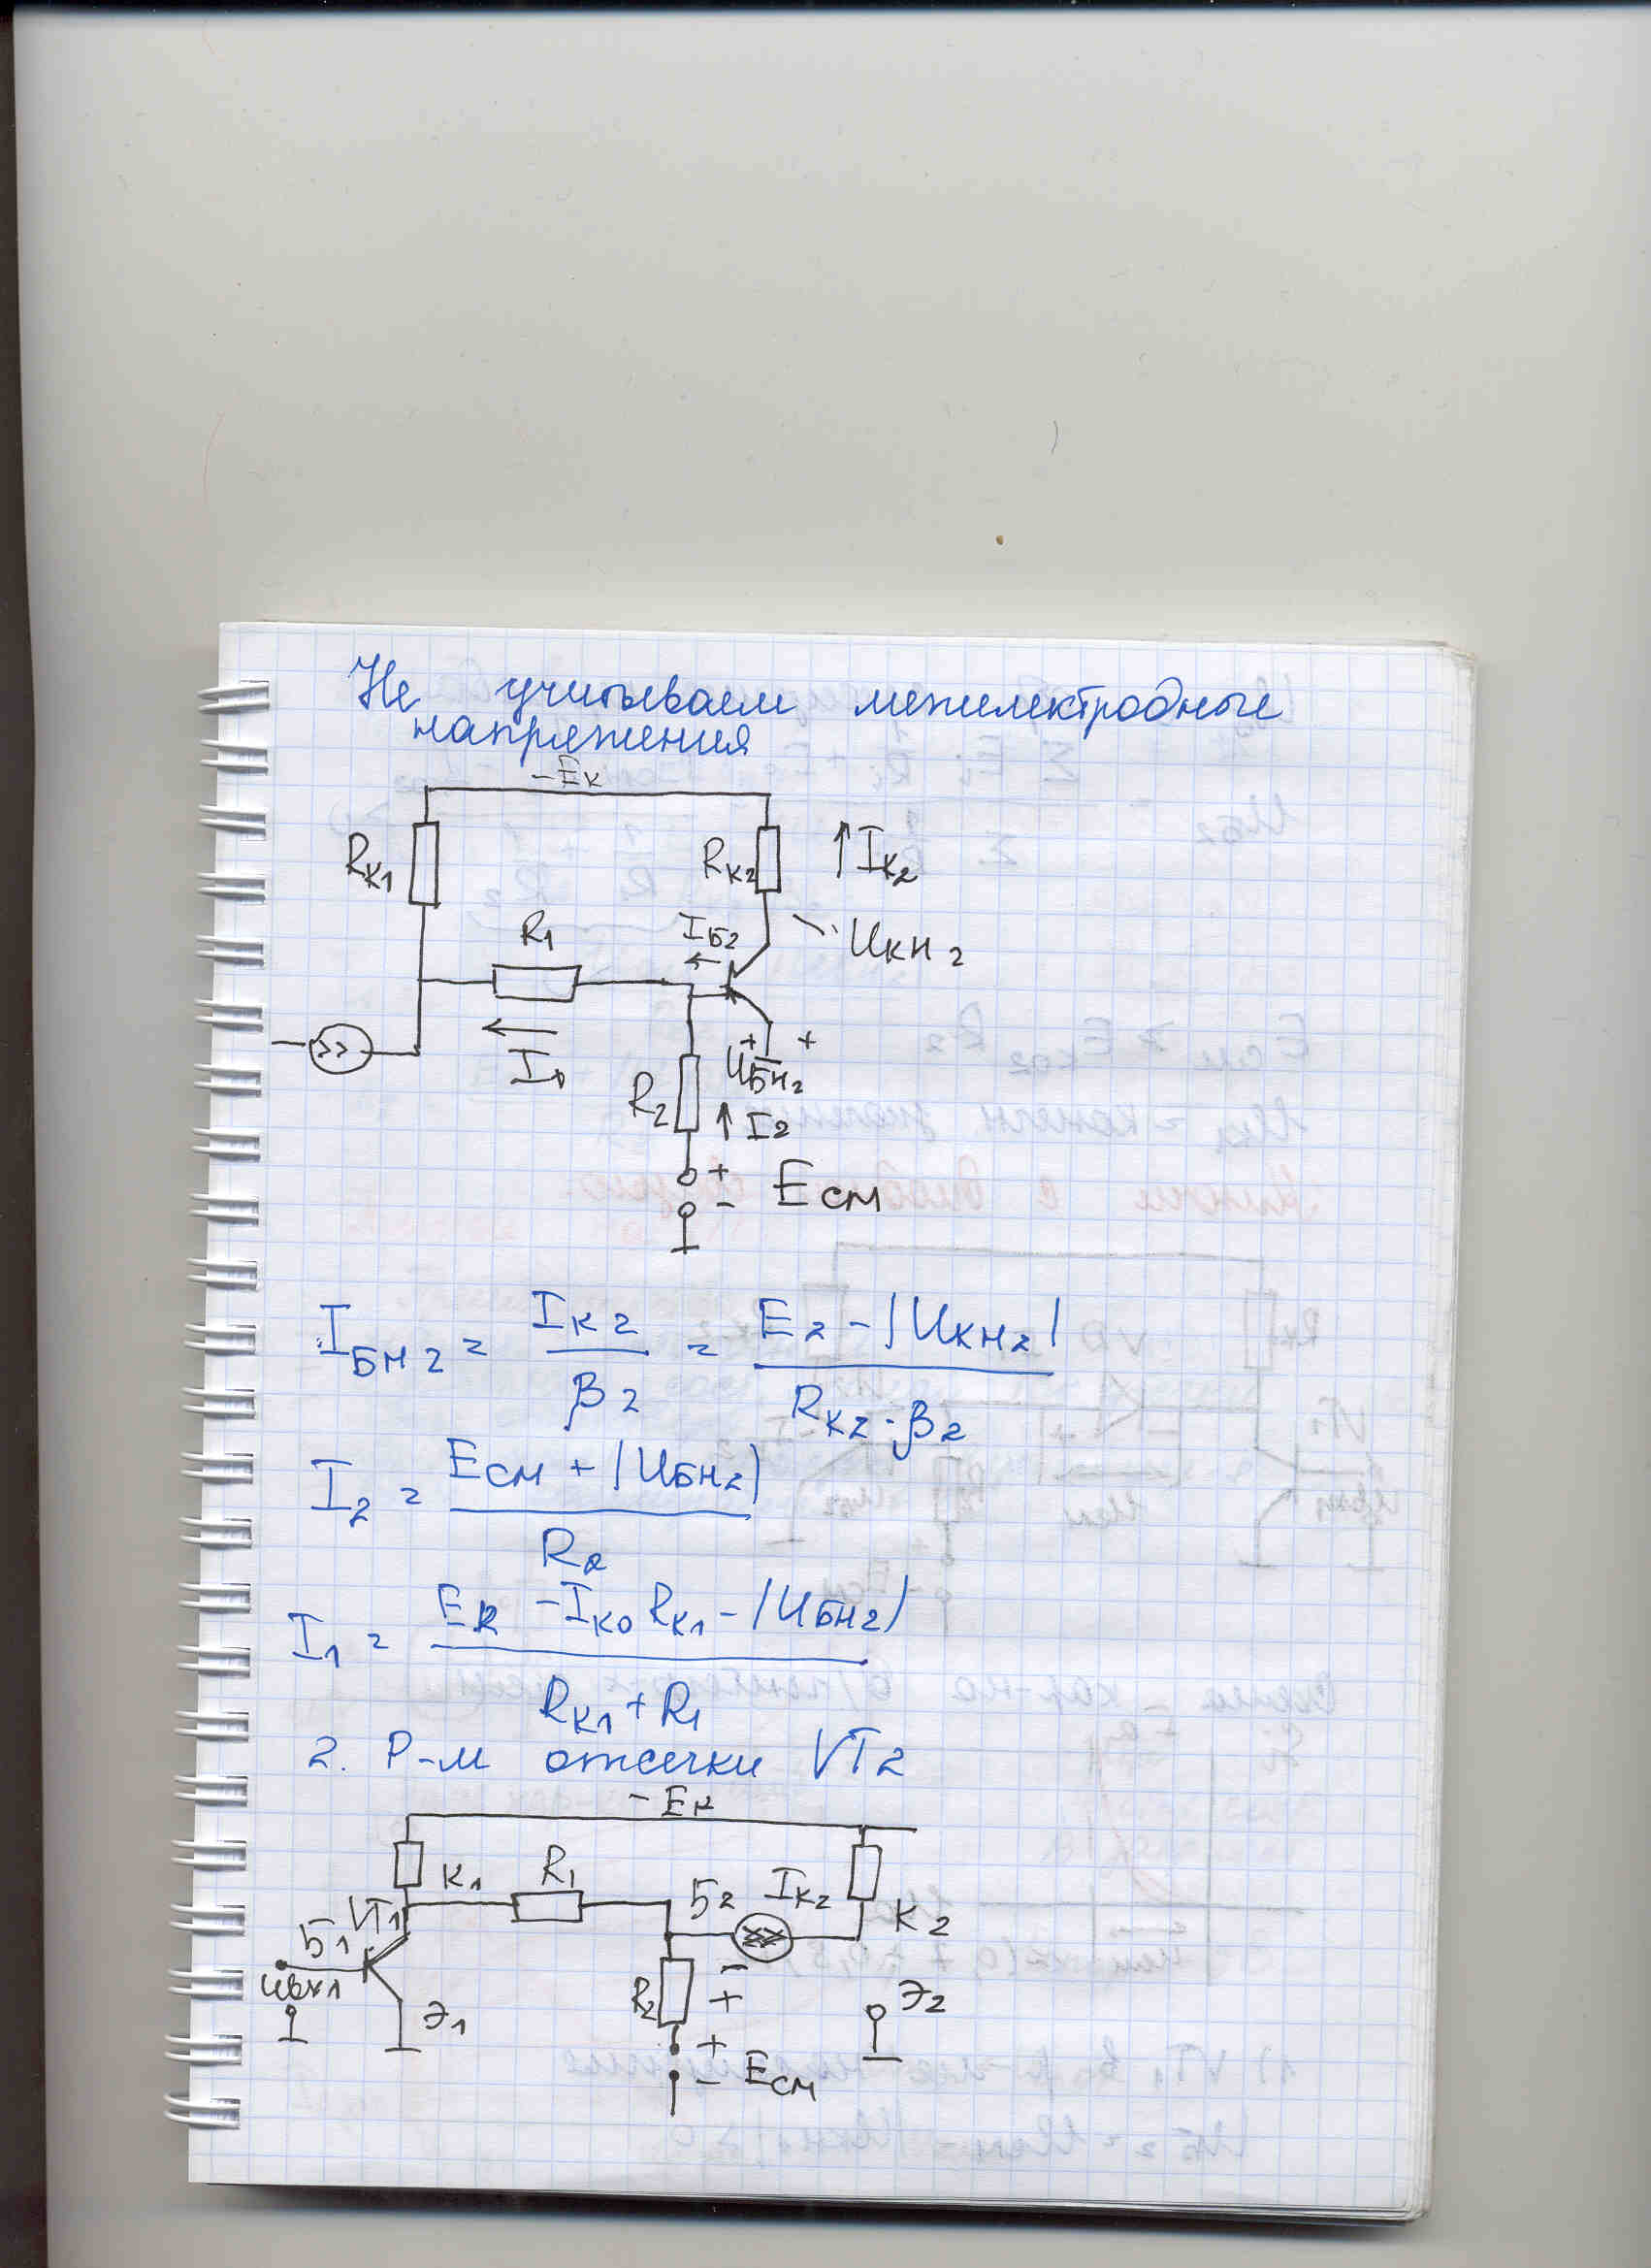 Не учитываем межэлектродные
напряжения
-Eк
Rк1
Rк2
↑Iк2
R1
Iб2
Uкн2
I1
Uбн2
R2
↑I2
+
- Eсм
Iбн2 = Iк2 / β2 = E2 - |Uкн2| / Rк2·β2
I2 = Eсм + |Uбн2| / R2
I1 = Eк - Iк0 Rк1 - |Uбн2| / Rк1 + R1
2. Р-м отсечки VT2
- Eк
К1
R1
Б2
Iк2
К2
VT1
Б1
Uвх1
Э1
R2
-
+
Э2
+
- Eсм